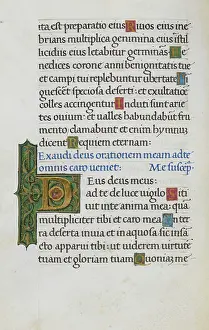 itatis est preparatio eius Riuos eius ine
brians multiplica genimina eius in stil
licidijs eius letabitur germinãs Be
nedices corone anni benignitatis tue
et campi tui replebuntur ubertate
iguescet speciosa deserti et exultatiõe
colles accingentur Induti sunt arie
tes ouium et ualles habundabũt fru
mento clamabunt et enim hymnũ
dicent Requiem eternam
Exaudi deus orationem meam ad te
omnis caro ueniet Me suscep
Deus deus meus
ad te de luce uigilo Siti
uit in te anima mea quã
multipliciter tibi et caro mea In ter
ra deserta inuia et inaquosa sic in sã
cto apparui tibi ut uiderem uirtutem
tuam et gloriam tuam Quoniã me